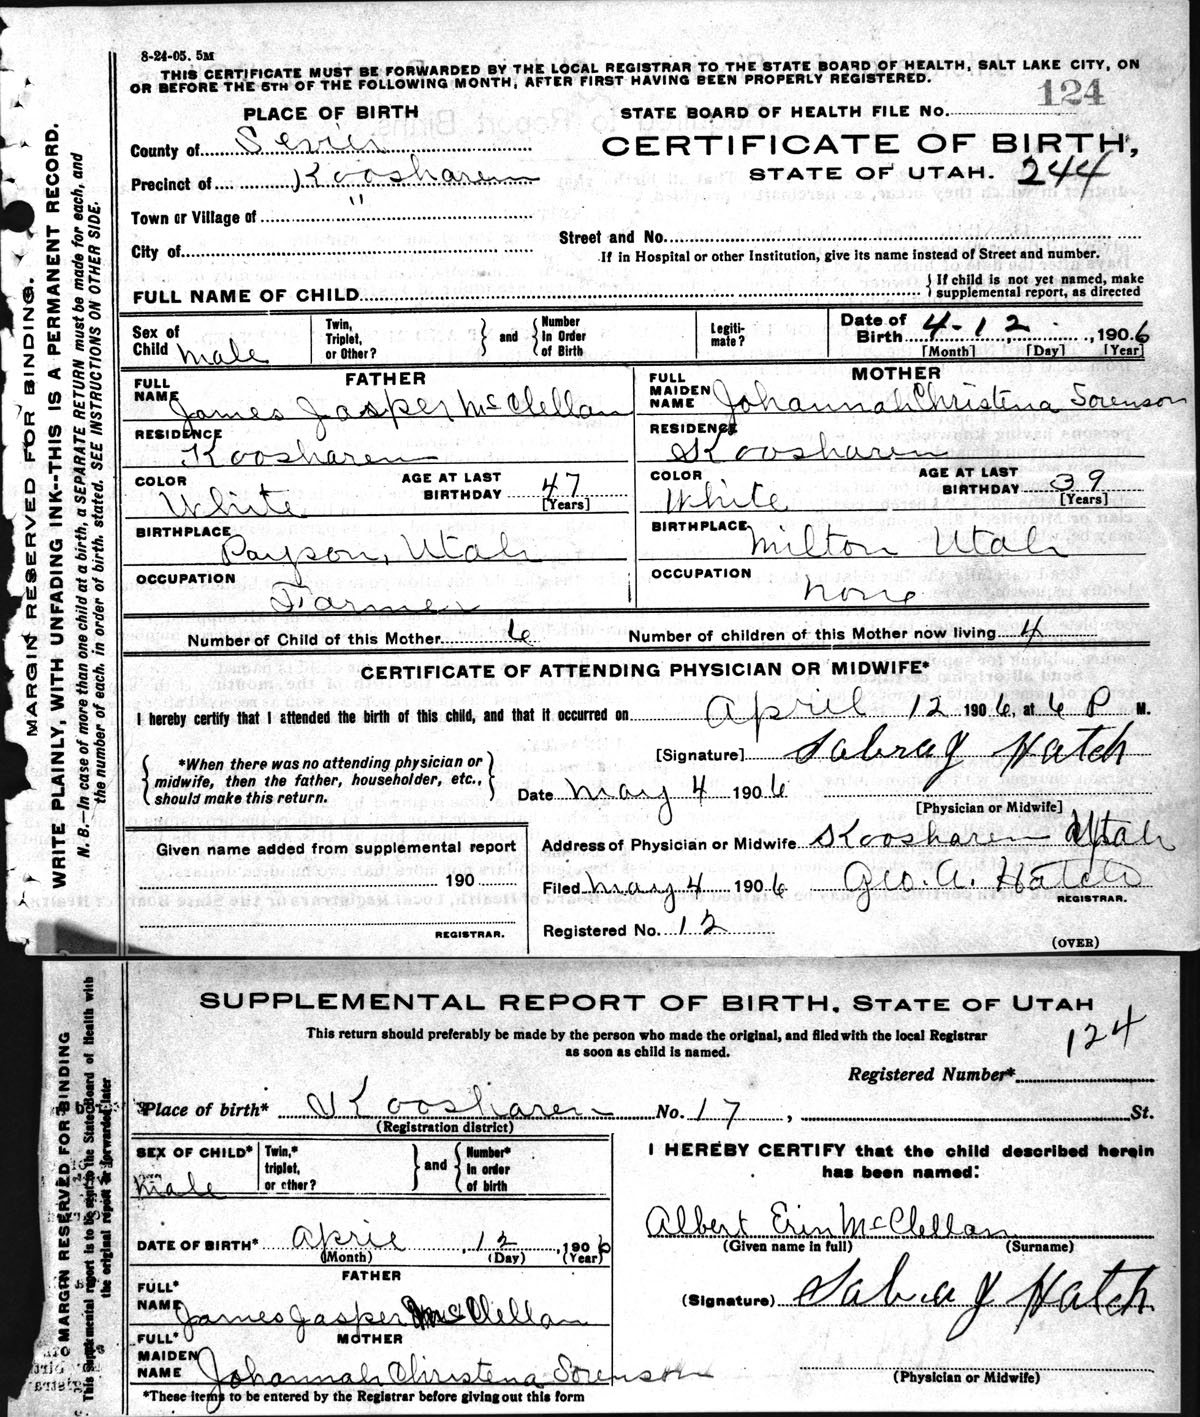 8-24-05. 5M
THIS CERTIFICATE MUST BE FORWARDED BY THE LOCAL REGISTRAR TO THE STATE BOARD OF HEALTH, SALT LAKE CITY, ON
OR BEFORE THE 5TH OF THE FOLLOWING MONTH, AFTER FIRST HAVING BEEN PROPERLY REGISTERED.
124
PLACE OF BIRTH
STATE BOARD OF HEALTH FILE No.
County of Sevier
CERTIFICATE OF BIRTH,
Precinct of Koosharem
STATE OF UTAH. 244
Town or Village of "
Street and No.
City of
If in Hospital or other Institution, give its name instead of Street and number.
FULL NAME OF CHILD
If child is not yet named, make
supplemental report, as directed
Sex of Child male
Twin, Triplet, or Other?
and
Number in Order of Birth
Legiti-mate?
Date of Birth 4-12, 1906
[Month] [Day] [Year]
FATHER
FULL NAME James Jasper McClellan
RESIDENCE Koosharem
COLOR White
AGE AT LAST BIRTHDAY 47 [Years]
BIRTHPLACE Payson, Utah
OCCUPATION Farmer
MOTHER
FULL MAIDEN NAME Johannah Christena Sorenson
RESIDENCE Koosharem
COLOR White
AGE AT LAST BIRTHDAY 39 [Years]
BIRTHPLACE Milton Utah
OCCUPATION none
Number of Child of this Mother 6
Number of children of this Mother now living 4
CERTIFICATE OF ATTENDING PHYSICIAN OR MIDWIFE*
I hereby certify that I attended the birth of this child, and that it occurred on April 12 1906, at 6 P M.
*When there was no attending physician or
midwife, then the father, householder, etc.,
should make this return.
[Signature] Sabra J Hatch
Date May 4 1906
[Physician or Midwife]
Given name added from supplemental report
190
REGISTRAR.
Address of Physician or Midwife Koosharem Utah
Filed May 4 1906 Geo. A. Hatch
REGISTRAR.
Registered No. 12
(OVER)
MARGIN RESERVED FOR BINDING.
WRITE PLAINLY, WITH UNFADING INK--THIS IS A PERMANENT RECORD.
N. B.—In case of more than one child at a birth, a SEPARATE RETURN must be made for each, and
the number of each, in order of birth, stated. SEE INSTRUCTIONS ON OTHER SIDE.
SUPPLEMENTAL REPORT OF BIRTH, STATE OF UTAH
This return should preferably be made by the person who made the original, and filed with the local Registrar
as soon as child is named.
124
Registered Number*
Place of birth* Koosharem No. 17, St.
(Registration district)
SEX OF CHILD* male
Twin,* triplet, or other?
and
Number* in order of birth
DATE OF BIRTH* April, 12, 1906
(Month) (Day) (Year)
FATHER
FULL* NAME James Jasper McClellan
MOTHER
FULL* MAIDEN NAME Johannah Christena Sorenson
*These items to be entered by the Registrar before giving out this form
I HEREBY CERTIFY that the child described herein
has been named:
Albert Erin McClellan
(Given name in full) (Surname)
(Signature) Sabra J Hatch
(Physician or Midwife)
MARGIN RESERVED FOR BINDING
This Supplemental report is to be sent to the State Board of Health with
the original report or forwarded later